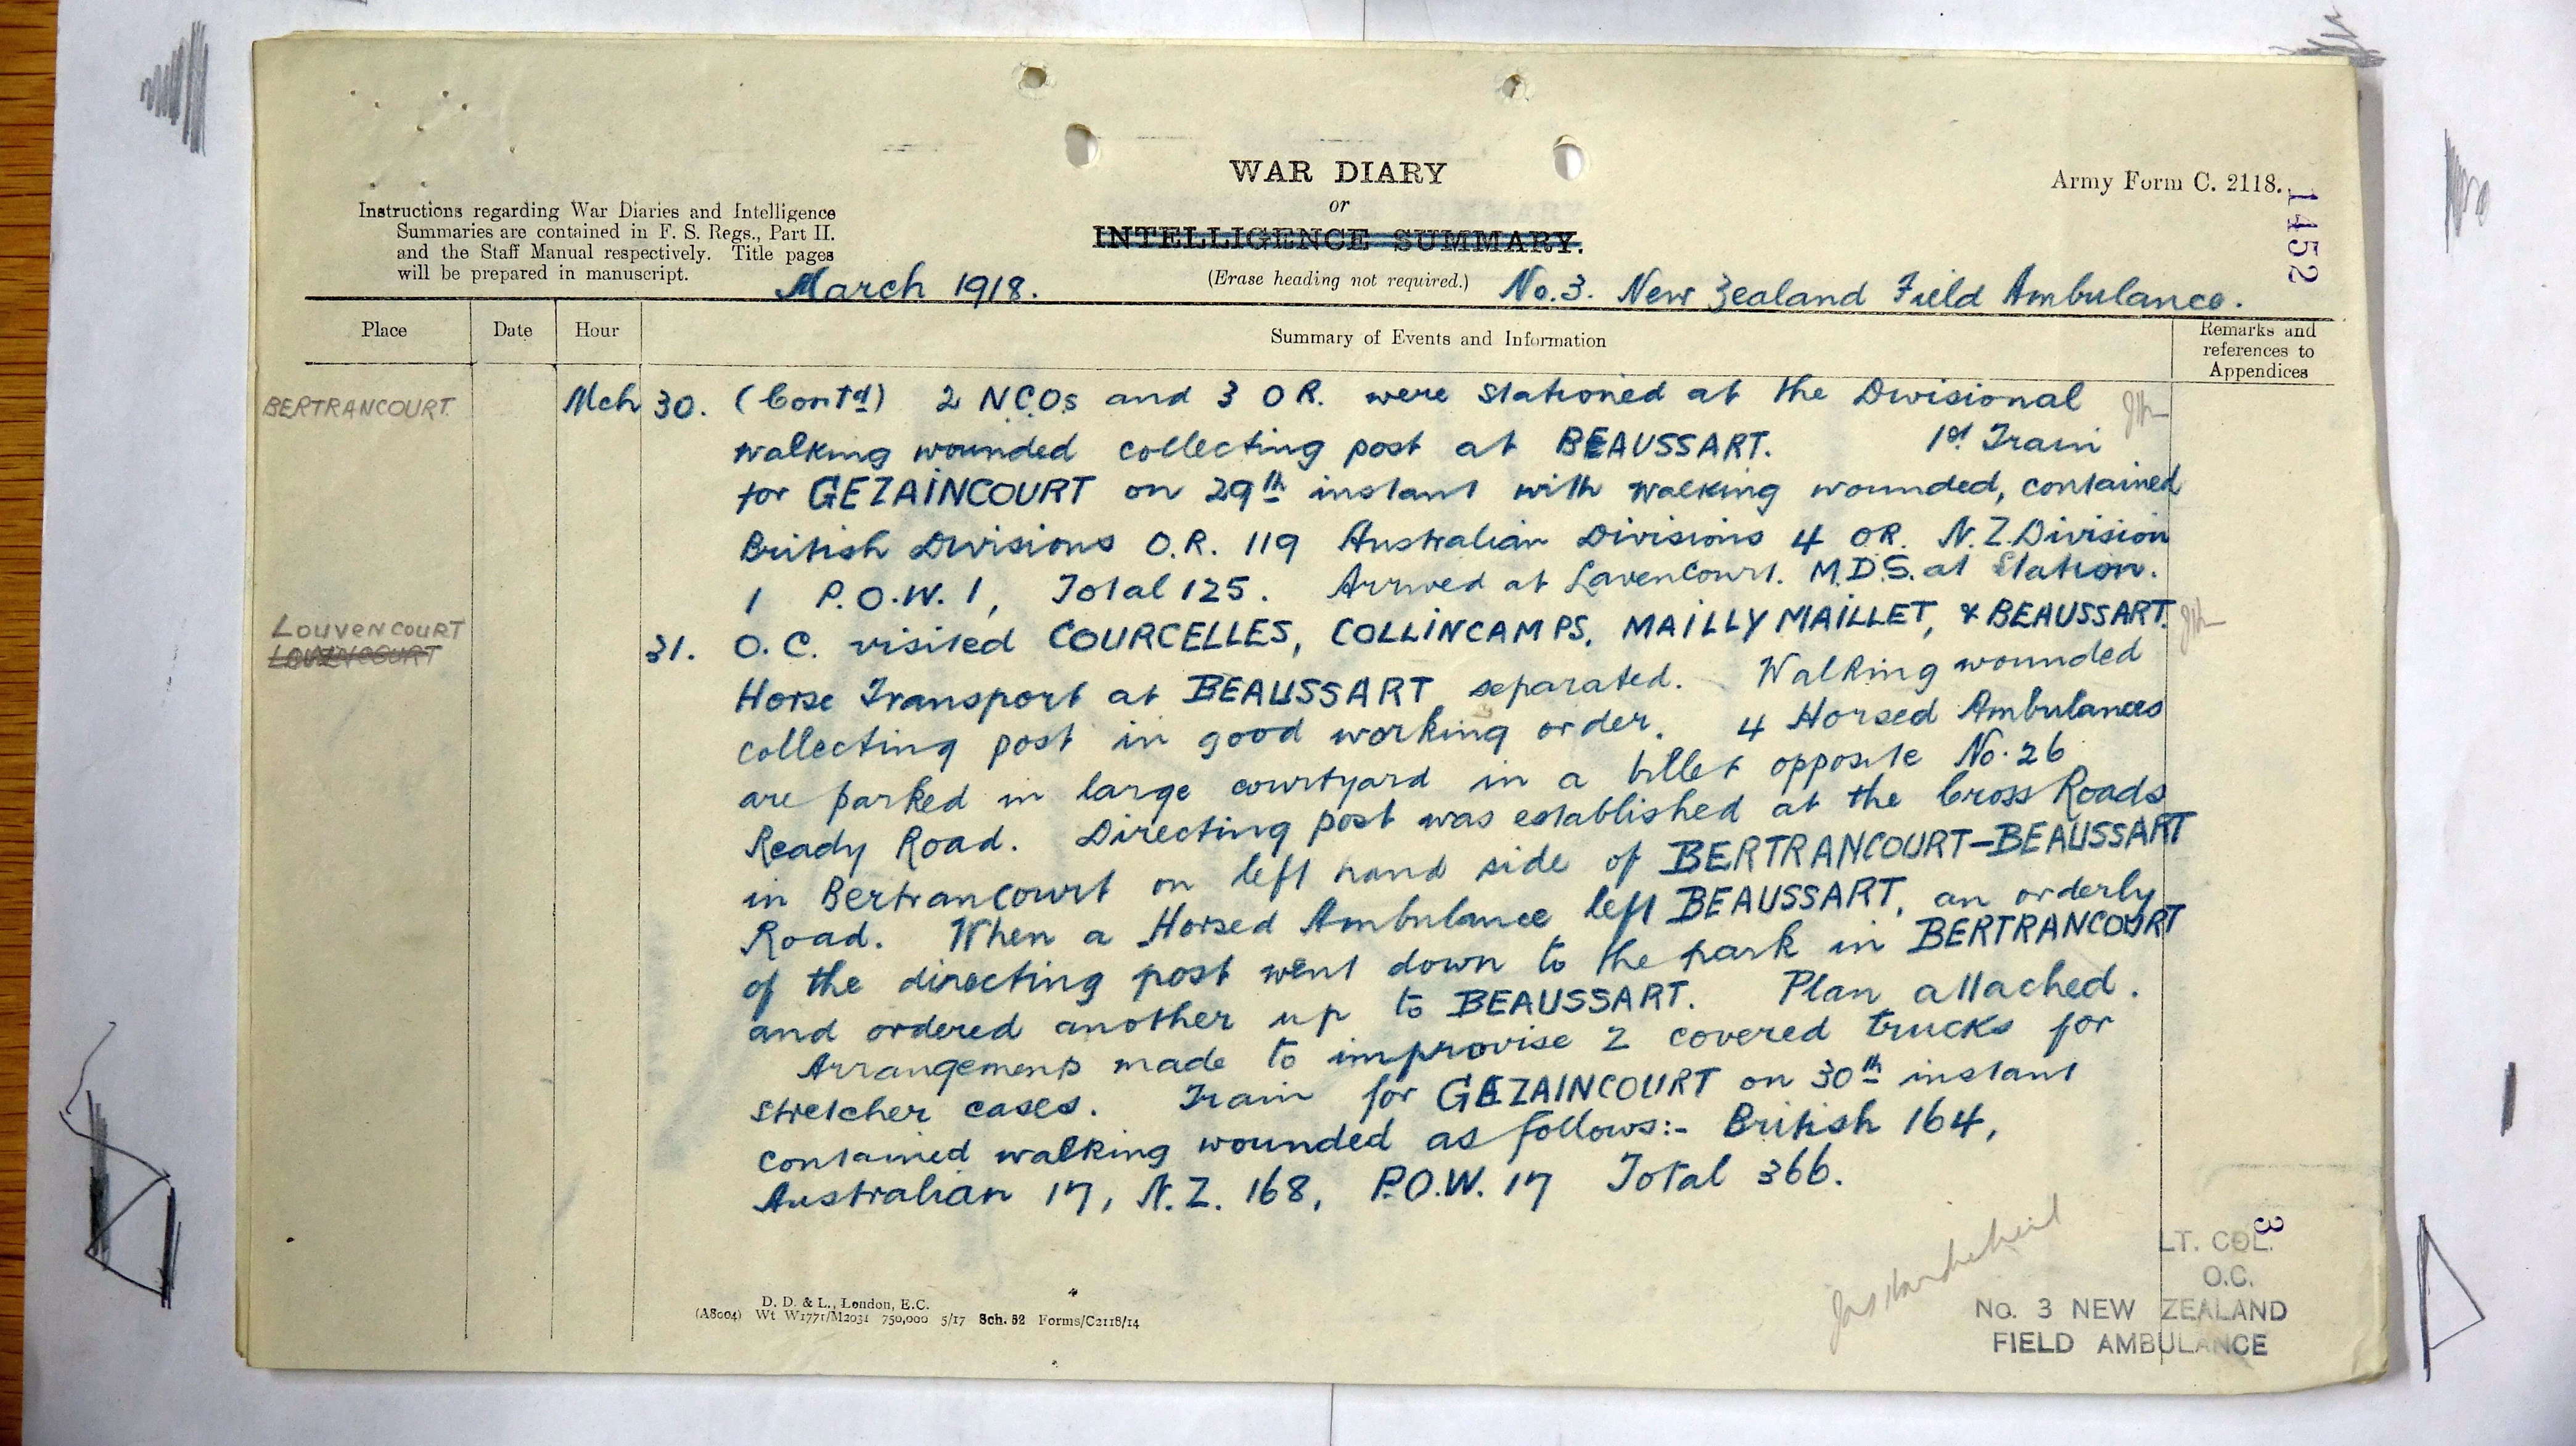 WAR DIARY
or
INTELLIGENCE SUMMARY.
(Erase heading not required.)
Army Form C. 2118.
1452
Instructions regarding War Diaries and Intelligence
Summaries are contained in F. S. Regs., Part II.
and the Staff Manual respectively. Title pages
will be prepared in manuscript.
March 1918.
No. 3. New Zealand Field Ambulance.
Place Date Hour Summary of Events and Information Remarks and
references to
Appendices
BERTRANCOURT. Mch 30. (Contd) 2 NCOs and 3 OR. were stationed at the Divisional
walking wounded collecting post at BEAUSSART. 1st Train
for GEZAINCOURT on 29th instant with walking wounded, contained
British Divisions O.R. 119 Australian Divisions 4 OR. N.Z. Division
1 P.O.W. 1, Total 125. Arrived at Lavencourt. M.D.S. at Station.
LOUVENCOURT
31. O.C. visited COURCELLES, COLLINCAMPS, MAILLY MAILLET, & BEAUSSART.
Horse Transport at BEAUSSART separated. Walking wounded
collecting post in good working order. 4 Horsed Ambulances
are parked in large courtyard in a billet opposite No. 26
Ready Road. Directing post was established at the Cross Roads
in Bertrancourt on left hand side of BERTRANCOURT-BEAUSSART
Road. When a Horsed Ambulance left BEAUSSART, an orderly
of the directing post went down to the park in BERTRANCOURT
and ordered another up to BEAUSSART. Plan attached.
Arrangements made to improvise 2 covered trucks for
stretcher cases. Train for GEZAINCOURT on 30th instant
contained walking wounded as follows:- British 164,
Australian 17, N.Z. 168, P.O.W. 17 Total 366.
3
LT. COL.
O.C.
No. 3 NEW ZEALAND
FIELD AMBULANCE
D. D. & L., London, E.C.
(A8004) Wt W1771/M2031 750,000 5/17 Sch. 52 Forms/C2118/14